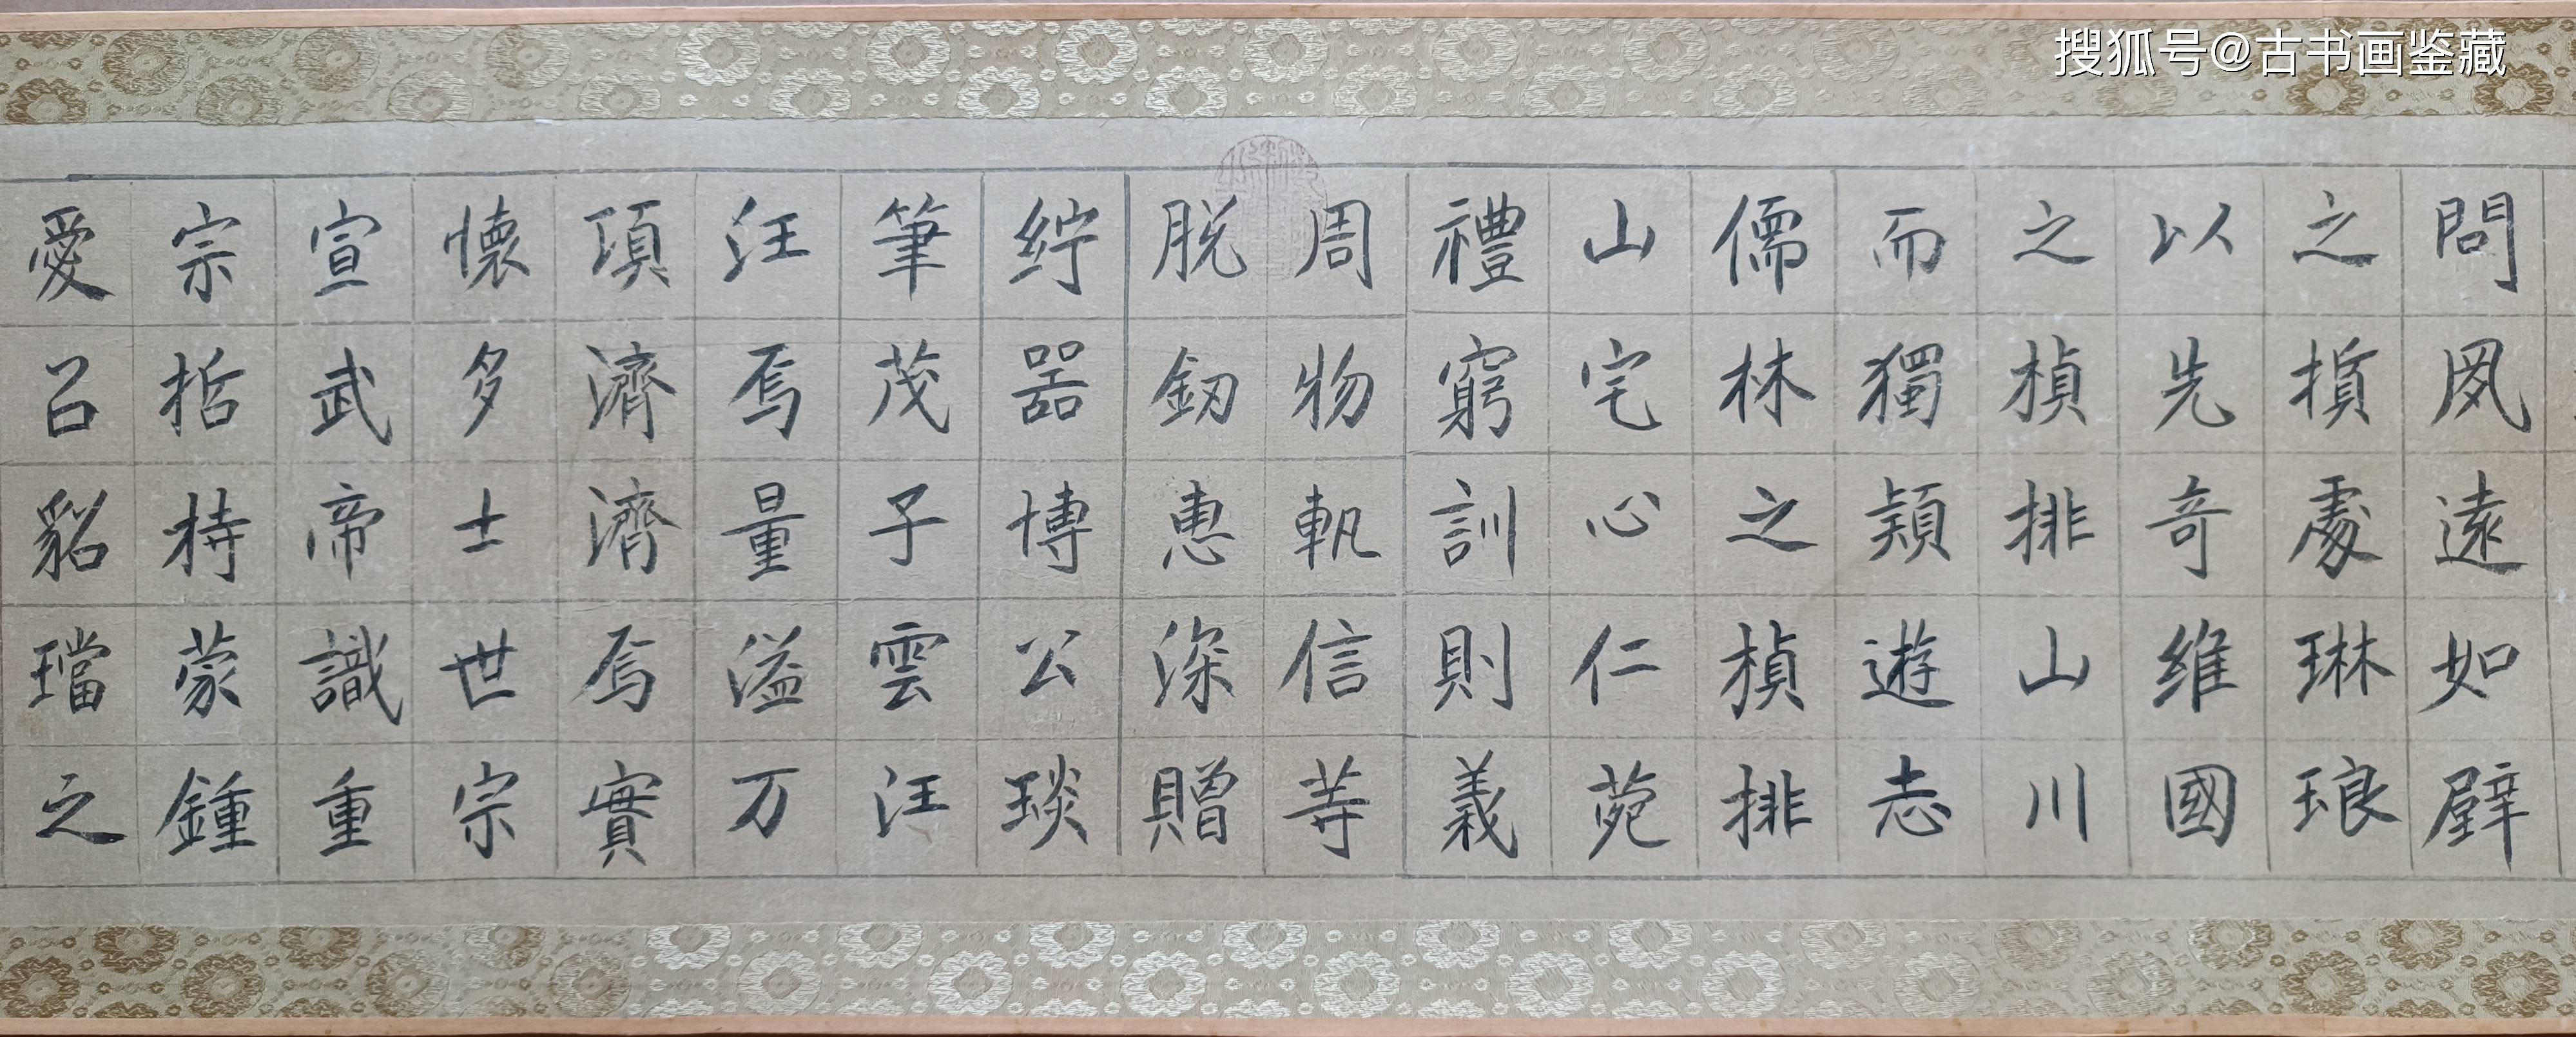 搜狐号@古书画鉴藏
問风遠如壁
之損處琳琅
以先奇維國
之楨排山川
而獨穎遊志
儒林之楨排
山宅心仁菀
禮窮訓則義
周物軌信等
脱釰惠深贈
紵器博公琰
筆茂子雲汪
汪焉量溢万
項濟濟焉實
懷多士世宗
宣武帝識重
宗哲持蒙鍾
愛召貂璫之